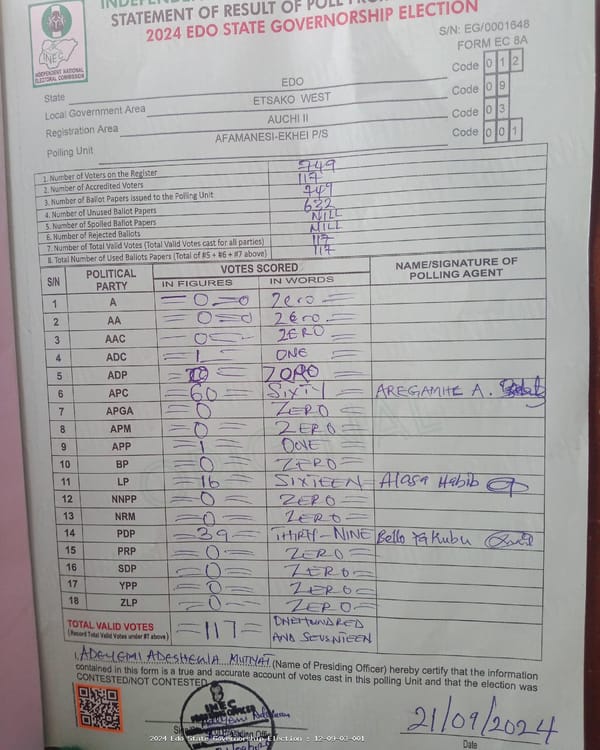 INDEPENDENT
STATEMENT OF RESULT OF POLL FROM
2024 EDO STATE GOVERNORSHIP ELECTION
INEC
INDEPENDENT NATIONAL
ELECTORAL COMMISSION
S/N: EG/0001648
FORM EC 8A
State EDO Code 0 1 2
Local Government Area ETSAKO WEST Code 0 9
Registration Area AUCHI II Code 0 3
Polling Unit AFAMANESI-EKHEI P/S Code 0 0 1
1. Number of Voters on the Register 749
2. Number of Accredited Voters 117
3. Number of Ballot Papers issued to the Polling Unit 749
4. Number of Unused Ballot Papers 632
5. Number of Spoiled Ballot Papers NILL
6. Number of Rejected Ballots NILL
7. Number of Total Valid Votes (Total Valid Votes cast for all parties) 117
8. Total Number of Used Ballots Papers (Total of #5 + #6 + #7 above) 117
S/N POLITICAL PARTY VOTES SCORED NAME/SIGNATURE OF POLLING AGENT
IN FIGURES IN WORDS
1 A =0=0 Zero =
2 AA =0=0 Zero =
3 AAC =0= ZERO =
4 ADC =1= ONE =
5 ADP =0= ZORO =
6 APC =60= SIXTY = AREGAMHE A.
7 APGA =0= ZERO =
8 APM =0= ZERO =
9 APP =1= OONE =
10 BP =0= ZERO =
11 LP =16= SIXTEEN = Alasa Habib
12 NNPP =0= ZERO =
13 NRM =0= ZERO =
14 PDP =39= THIRTY-NINE Bello Yakubu
15 PRP =0= ZERO =
16 SDP =0= ZERO =
17 YPP =0= ZERO =
18 ZLP =0= ZERO =
TOTAL VALID VOTES =117= ONE HUNDRED
(Record Total Valid Votes under #7 above) AND SEVENTEEN
I, ADEYEMI (Name of Presiding Officer) hereby certify that the information
contained in this form is a true and accurate account of votes cast in this polling Unit and that the election was
CONTESTED/NOT CONTESTED
INEC
21/09/2024
Date
2024 Edo State Governorship Election : 12-09-03-001